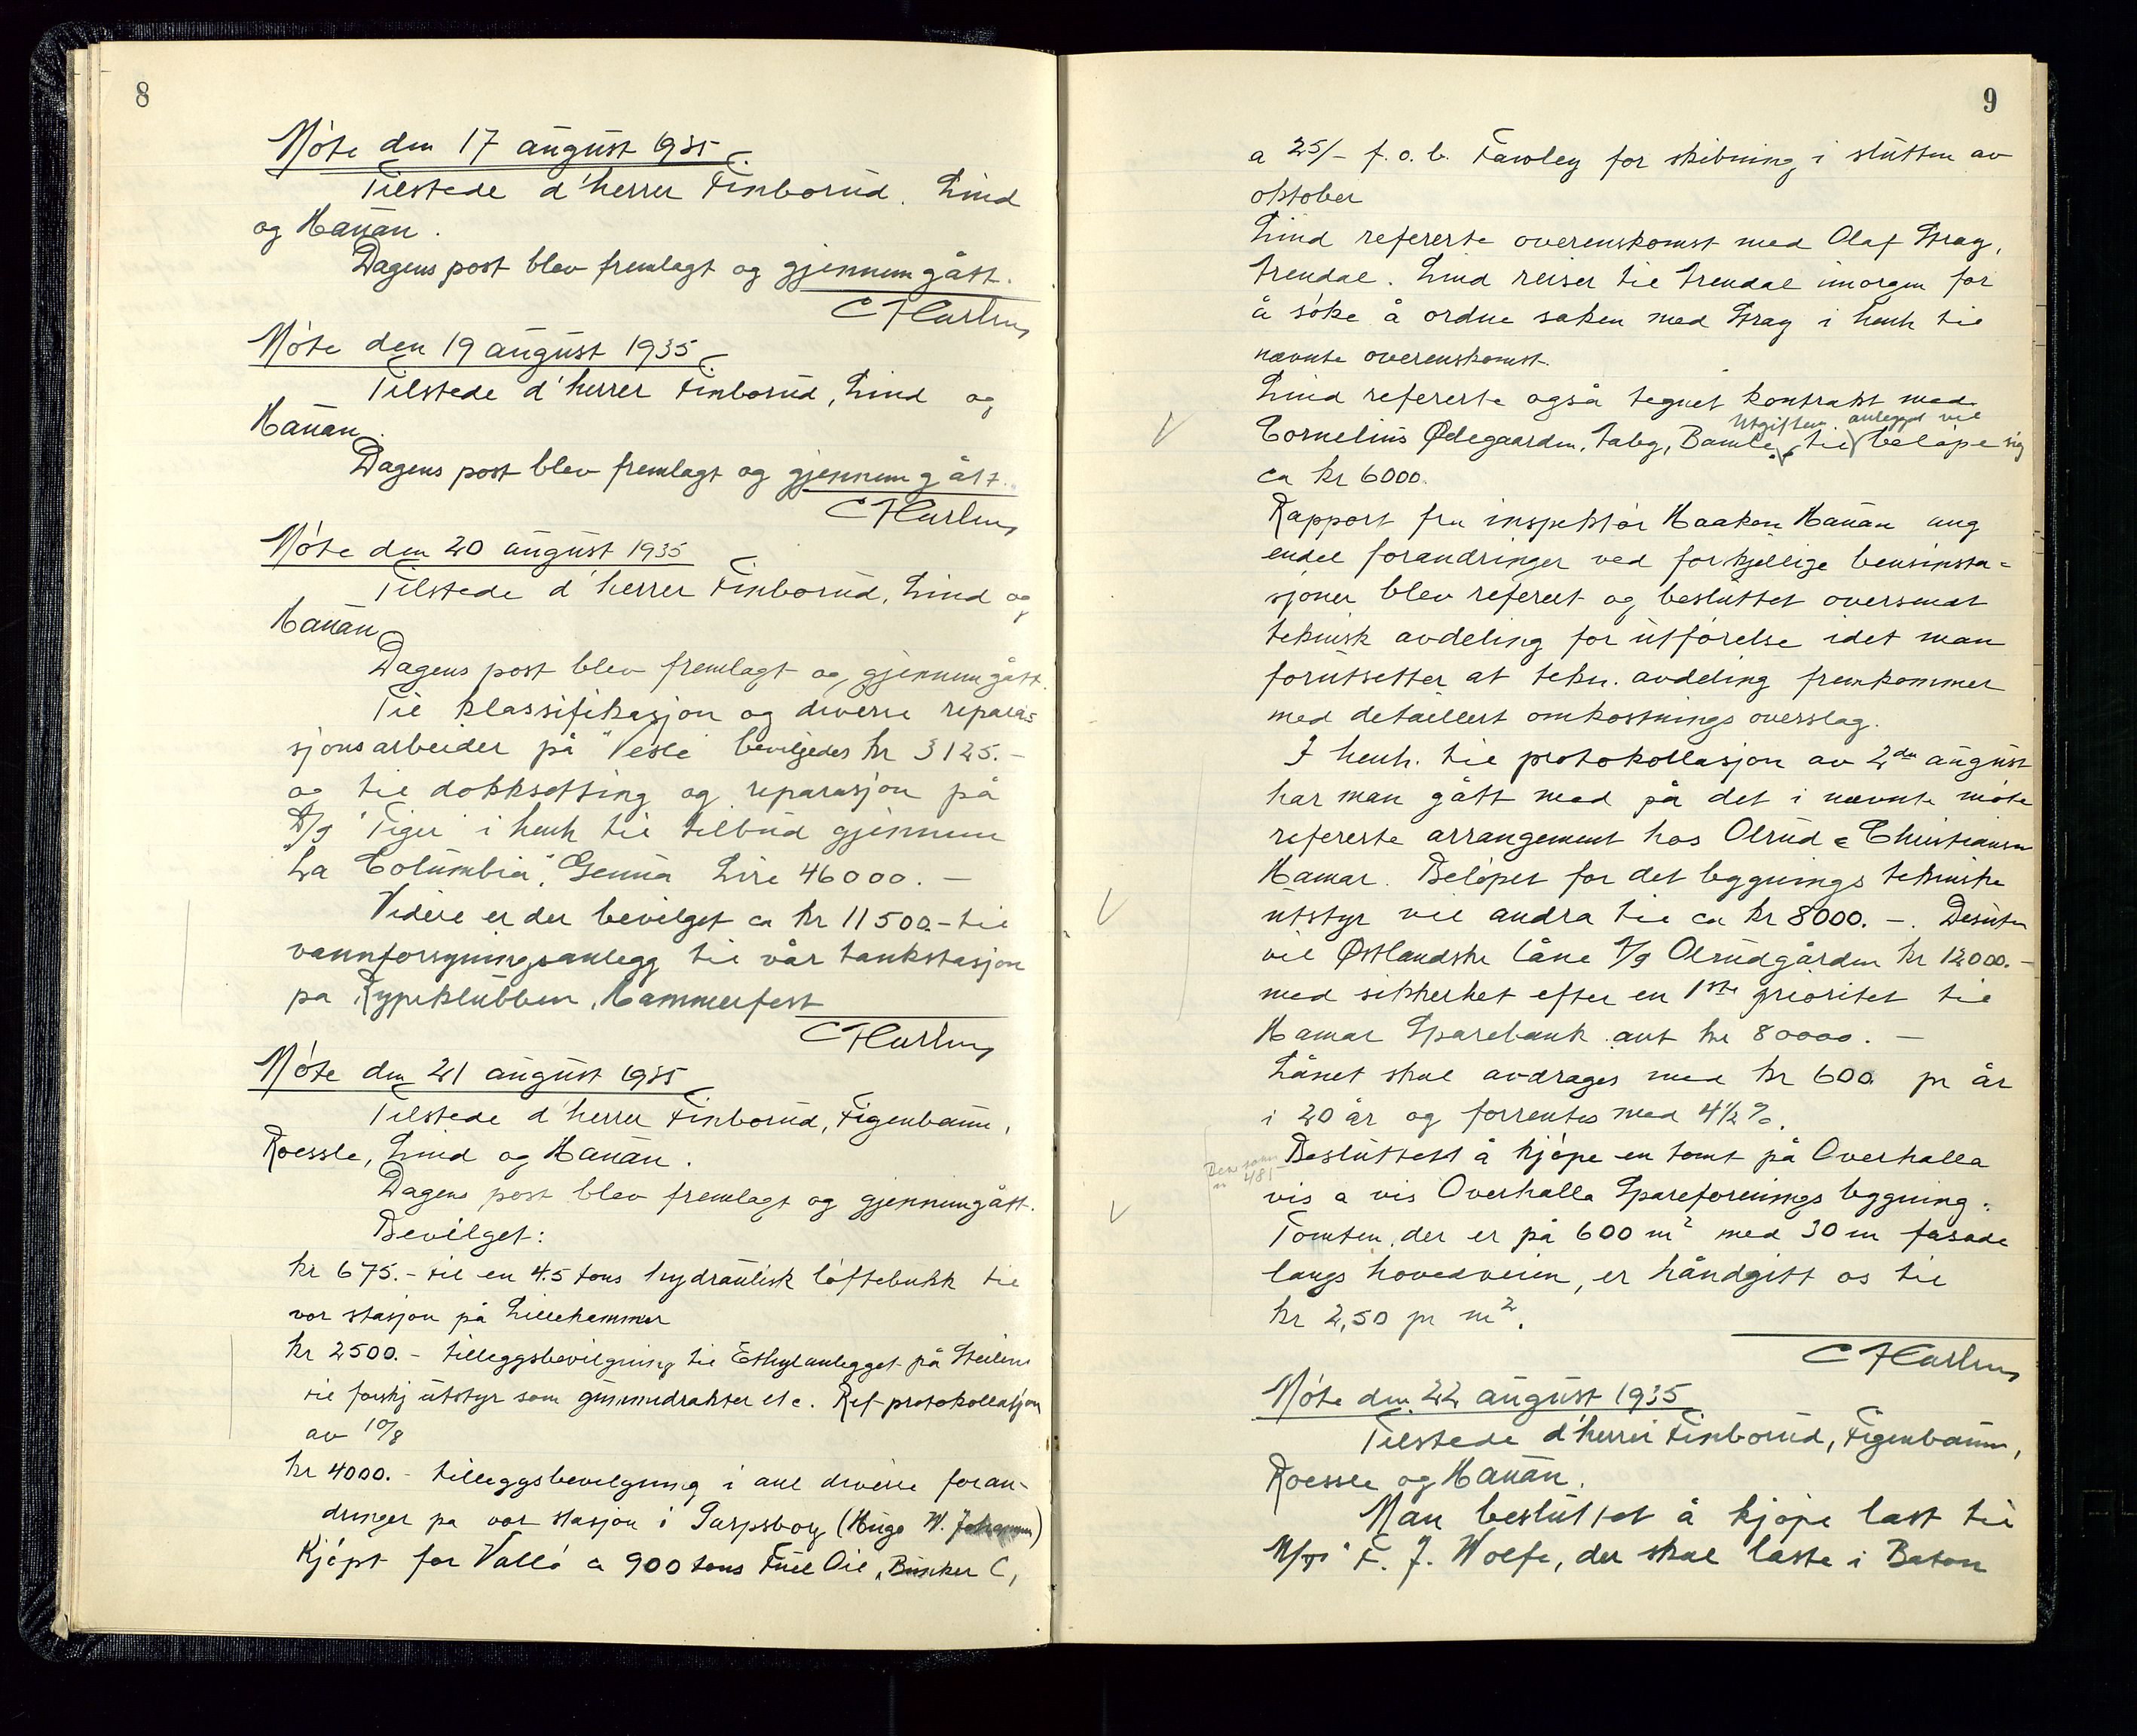 8
Møte den 17 august 1935.
Tilstede d'herrer Finborud. Lind
og Hauan.
Dagens post blev fremlagt og gjennemgått.
Møte den 19 august 1935.
Tilstede d'herrer Finborud, Lind og
Hauan.
Dagens post blev fremlagt og gjennemgått.
Møte den 20 august 1935
Tilstede d'herrer Finborud, Lind og
Hauan
Dagens post blev fremlagt og gjennemgått.
Til klassifikasjon og diverse repara=
sjonsarbeider på "Vesle" beviljedes kr 3125.-
og til dokksetting og reparasjon på
D/S "Tiger" i henh til tilbud gjennem
"La Columbia", Genua Lire 46000.-
Videre er der bevilget ca kr 11500.- til
vannforsyningsanlegg til vår tankstasjon
på Rypeklubben, Hammerfest
Møte den 21 august 1935
Tilstede d'herrer Finborud, Figenbaum,
Roessle, Lind og Hauan.
Dagens post blev fremlagt og gjennemgått.
Bevilget:
kr 675.- til en 4.5 tons hydraulisk løftebukk til
vor stasjon på Lillehammer
kr 2500.- tilleggsbevilgning til Ethylanlegget på Steilene
til forskj utstyr som gummidrakter etc. Ref protokollasjon
av 10/8
kr 4000.- tilleggsbevilgning i anl diverse foran-
dringer på vor stasjon i Sarpsborg (Hugo W. )
Kjøpt for Vallø ca 900 tons Fuel Oil, Bunker C,
9
a 25/- f.o.b. Fawley for skibning i slutten av
oktober
Lind refererte overenskomst med Olaf Stray,
Arendal. Lind reiser til Arendal imorgen for
å søke å ordne saken med Stray i henh til
nævnte overenskomst.
Lind refererte også tegnet kontrakt med
Utgiften anlegget vil
Cornelius Ødegaarden, Taby, Bamle, til beløpe sig
ca kr 6000.
Rapport fra inspektør Haakon Hauan ang
endel forandringer ved forskjellige bensinsta=
sjoner blev referert og besluttet oversendt
teknisk avdeling for utførelse idet man
forutsetter at tekn. avdeling fremkommer
med detaillert omkostningsoverslag.
I henh. til protokollasjon av 2den august
har man gått med på det i nævnte møte
refererte arrangement hos Olrud & Christiansen
Hamar. Beløpet for det bygningstekniske
utstyr vil andra til ca kr 8000.-. Desuten
vil Østlandske låne A/S Olrudgården kr 12000.-
med sikkerhet efter en 1ste prioritet til
Hamar Sparebank ant kr 80000.-
Lånet skal avdrages med kr 600 pr år
i 20 år og forrentes med 4½ %.
Besluttet å kjøpe en tomt på Overhalla
vis a vis Overhalla Spareforenings bygning.
Tomten, der er på 600 m² med 30 m fasade
langs hovedveien, er håndgitt os til
kr 2,50 pr m².
Møte den 22 august 1935
Tilstede d'herrer Finborud, Figenbaum,
Roessle og Hauan.
Man besluttet å kjøpe last til
M/T F. J. Wolfe, der skal laste i Baton